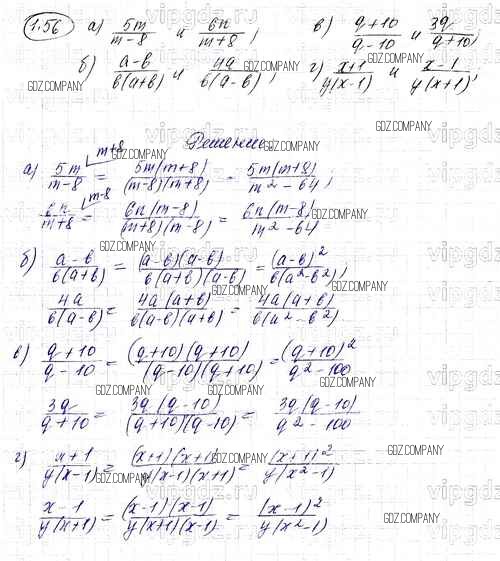 1.56 а) 5m/(m-8) и 6n/(m+8); в) (q+10)/(q-10) и 3q/(q+10);
б) (a-b)/(b(a+b)) и 4a/(b(a-b)); г) (x+1)/(y(x-1)) и (x-1)/(y(x+1));
Решение
а) 5m/(m-8) ^(m+8) = 5m(m+8)/((m-8)(m+8)) = 5m(m+8)/(m²-64);
6n/(m+8) ^(m-8) = 6n(m-8)/((m+8)(m-8)) = 6n(m-8)/(m²-64)
б) (a-b)/(b(a+b)) = (a-b)(a-b)/(b(a+b)(a-b)) = (a-b)²/(b(a²-b²));
4a/(b(a-b)) = 4a(a+b)/(b(a-b)(a+b)) = 4a(a+b)/(b(a²-b²))
в) (q+10)/(q-10) = (q+10)(q+10)/((q-10)(q+10)) = (q+10)²/(q²-100)
3q/(q+10) = 3q(q-10)/((q+10)(q-10)) = 3q(q-10)/(q²-100)
г) (x+1)/(y(x-1)) = (x+1)(x+1)/(y(x-1)(x+1)) = (x+1)²/(y(x²-1))
(x-1)/(y(x+1)) = (x-1)(x-1)/(y(x+1)(x-1)) = (x-1)²/(y(x²-1))
GDZ.COMPANY
vipgdz.ru